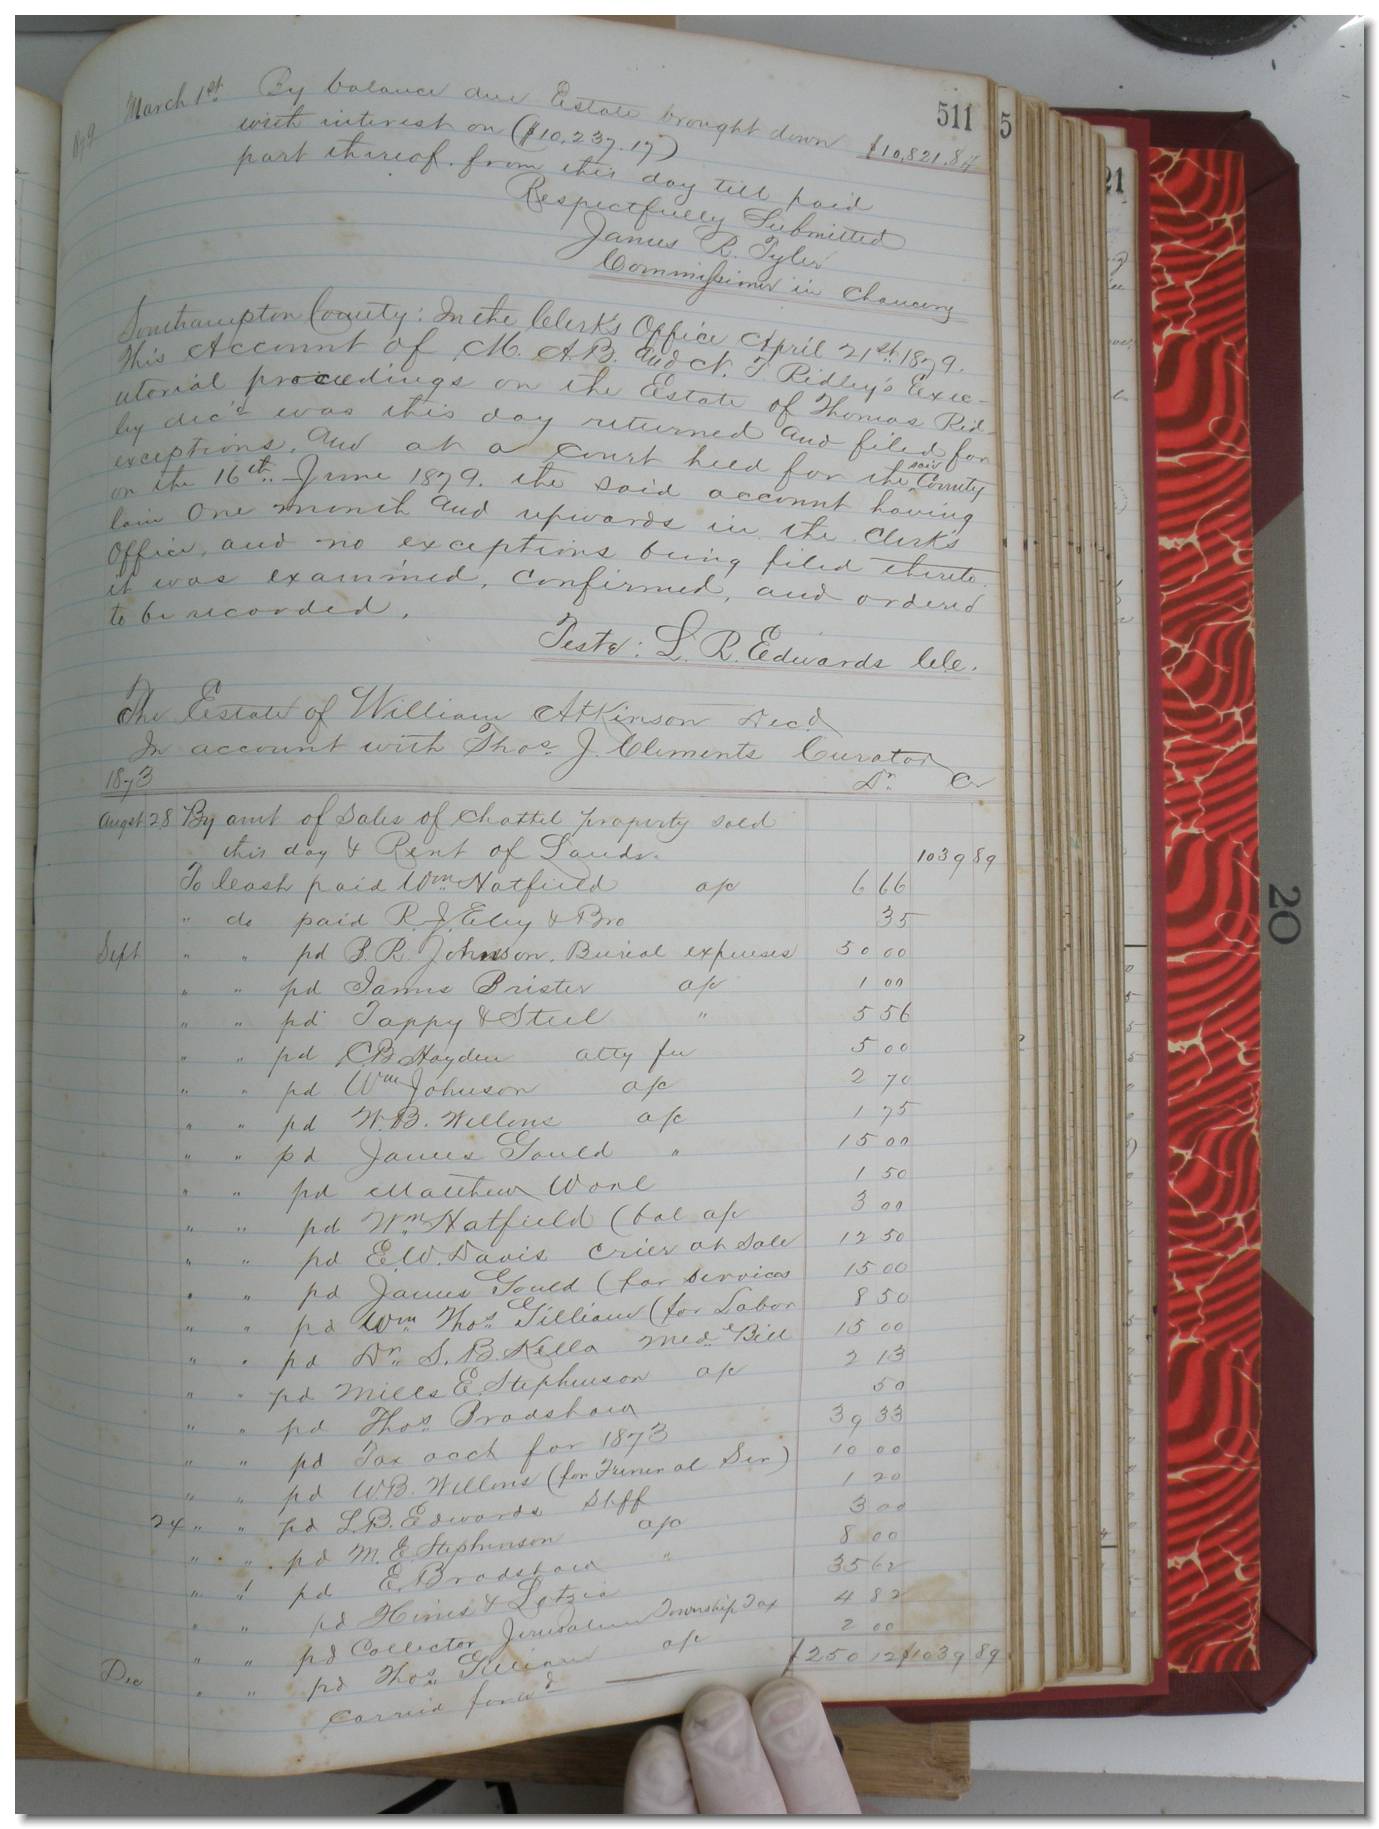 511
5
21
1879
March 1st. By balance due Estate brought down $10,821.84
with interest on ($10,237.17)
part thereof. from this day till paid
Respectfully Submitted
James R. Tyler
Commissioner in Chancery
Southampton County: In the Clerk's Office April 21st 1879.
This Account of M. A. B. and N. T. Ridley's Exec-
utorial proceedings on the Estate of Thomas Rid-
ley dec'd was this day returned and filed for
exceptions. And at a Court held for the said County
on the 16th. June 1879. the said account having
lain One month and upwards in the Clerk's
Office, and no exceptions being filed thereto.
it was examined, confirmed, and ordered
to be recorded.
Teste: L. R. Edwards Clk.
The Estate of William Atkinson Decd
In account with Thos. J. Clements Curator
1873 Dr. Cr
Augst 28 By amt of Sales of Chattel property sold
this day & Rent of Lands. 1039 89
To Cash paid Wm. Hatfield a/c 6 66
" do paid R. J. Eley & Bro 35
Sept " " pd B. R. Johnson. Burial expenses 30 00
" " pd James Brister a/c 1 00
" " pd Tappy & Steel " 5 56
" " pd C. B. Hayden atty fee 5 00
" " pd Wm Johnson a/c 2 70
" " pd W. B. Wellons a/c 1 75
" " pd James Gould " 15 00
" " pd Matthew 1 50
" " pd Wm. Hatfield (bal a/c 3 00
" " pd E. W. Davis Crier at Sale 12 50
" " pd James Gould (for services 15 00
" " pd Wm. Thos. Gilliam (for Labor 8 50
" " pd Dr. S. B. Kello Med. Bill 15 00
" " pd Mills E. Stephenson a/c 2 13
" " pd Thos. Bradshaw 50
" " pd Tax acct for 1873 39 33
" " pd W. B. Wellons (for Funeral Ser) 10 00
24 " " pd L. B. Edwards Shff 1 20
" " pd M. E. Stephenson a/c 3 00
" " pd E. Bradshaw " 8 00
" " pd Hines & 35 62
" " pd Collector Jerusalem Township Tax 4 82
Dec " " pd Thos. Gilliam a/c 2 00
Carried forwd $250 12 $1039 89
20